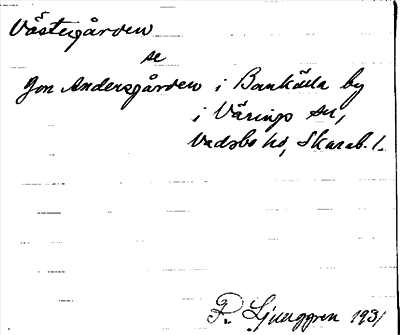 Västergården
se
Jon Andersgården i Bankälla by
i Värings sn,
Vadsbo hd, Skarab. l.
R. Ljunggren 1931